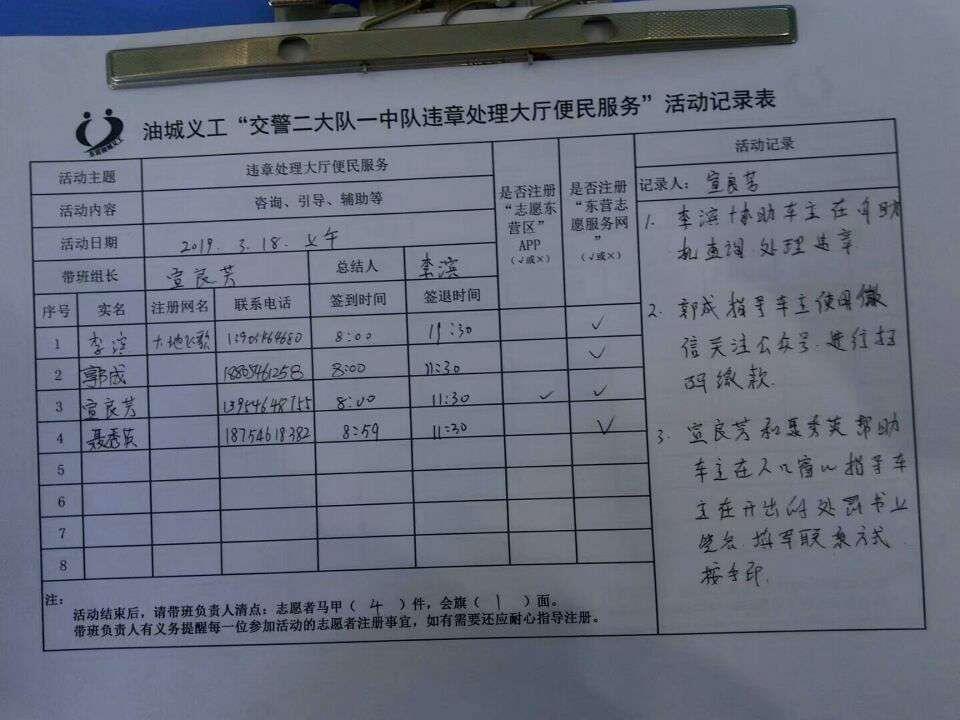 油城义工“交警二大队一中队违章处理大厅便民服务”活动记录表
活动主题 违章处理大厅便民服务
活动内容 咨询、引导、辅助等
活动日期 2019. 3.18. 上午
带班组长 宣良芳 总结人 李滨
是否注册“志愿东营区”APP（√或×）
是否注册“东营志愿服务网”（√或×）
序号 实名 注册网名 联系电话 签到时间 签退时间
1 李滨 大地飞歌 13905464680 8:00 11:30 √
2 郭成 18805461258 8:00 11:30 √
3 宣良芳 13954648755 8:00 11:30 √ √
4 聂秀英 18754618382 8:59 11:30 √
5
6
7
8
注：
活动结束后，请带班负责人清点：志愿者马甲（ 4 ）件，会旗（ 1 ）面。
带班负责人有义务提醒每一位参加活动的志愿者注册事宜，如有需要还应耐心指导注册。
活动记录
记录人：宣良芳
1. 李滨协助车主在自助
机查询.处理违章
2. 郭成指导车主使用微
信关注公众号.进行扫
码缴款.
3. 宣良芳和聂秀英帮助
车主在入口窗口指导车
主在开出的处罚书上
签名.填写联系方式.
按手印.